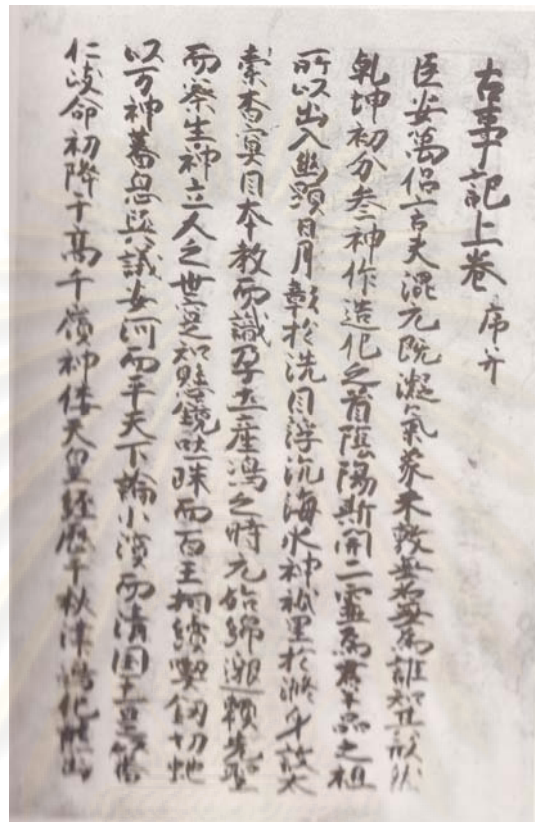 古事記上卷 序并
臣安萬侶言夫混元既凝氣象未效無名無為誰知其形然
乾坤初分参神作造化之首陰陽斯開二靈為群品之祖
所以出入幽顯日月彰於洗目浮沉海水神祇呈於滌身故太
素杳冥因本教而識孕土產嶋之時元始綿邈頼先聖
而察生神立人之世寔知懸鏡吐珠而百王相續喫釼切虵
以万神蕃息與議安河而平天下論小濱而清国土是以番
仁岐命初降于高千嶺神倭天皇經歷于秋津嶋化熊出